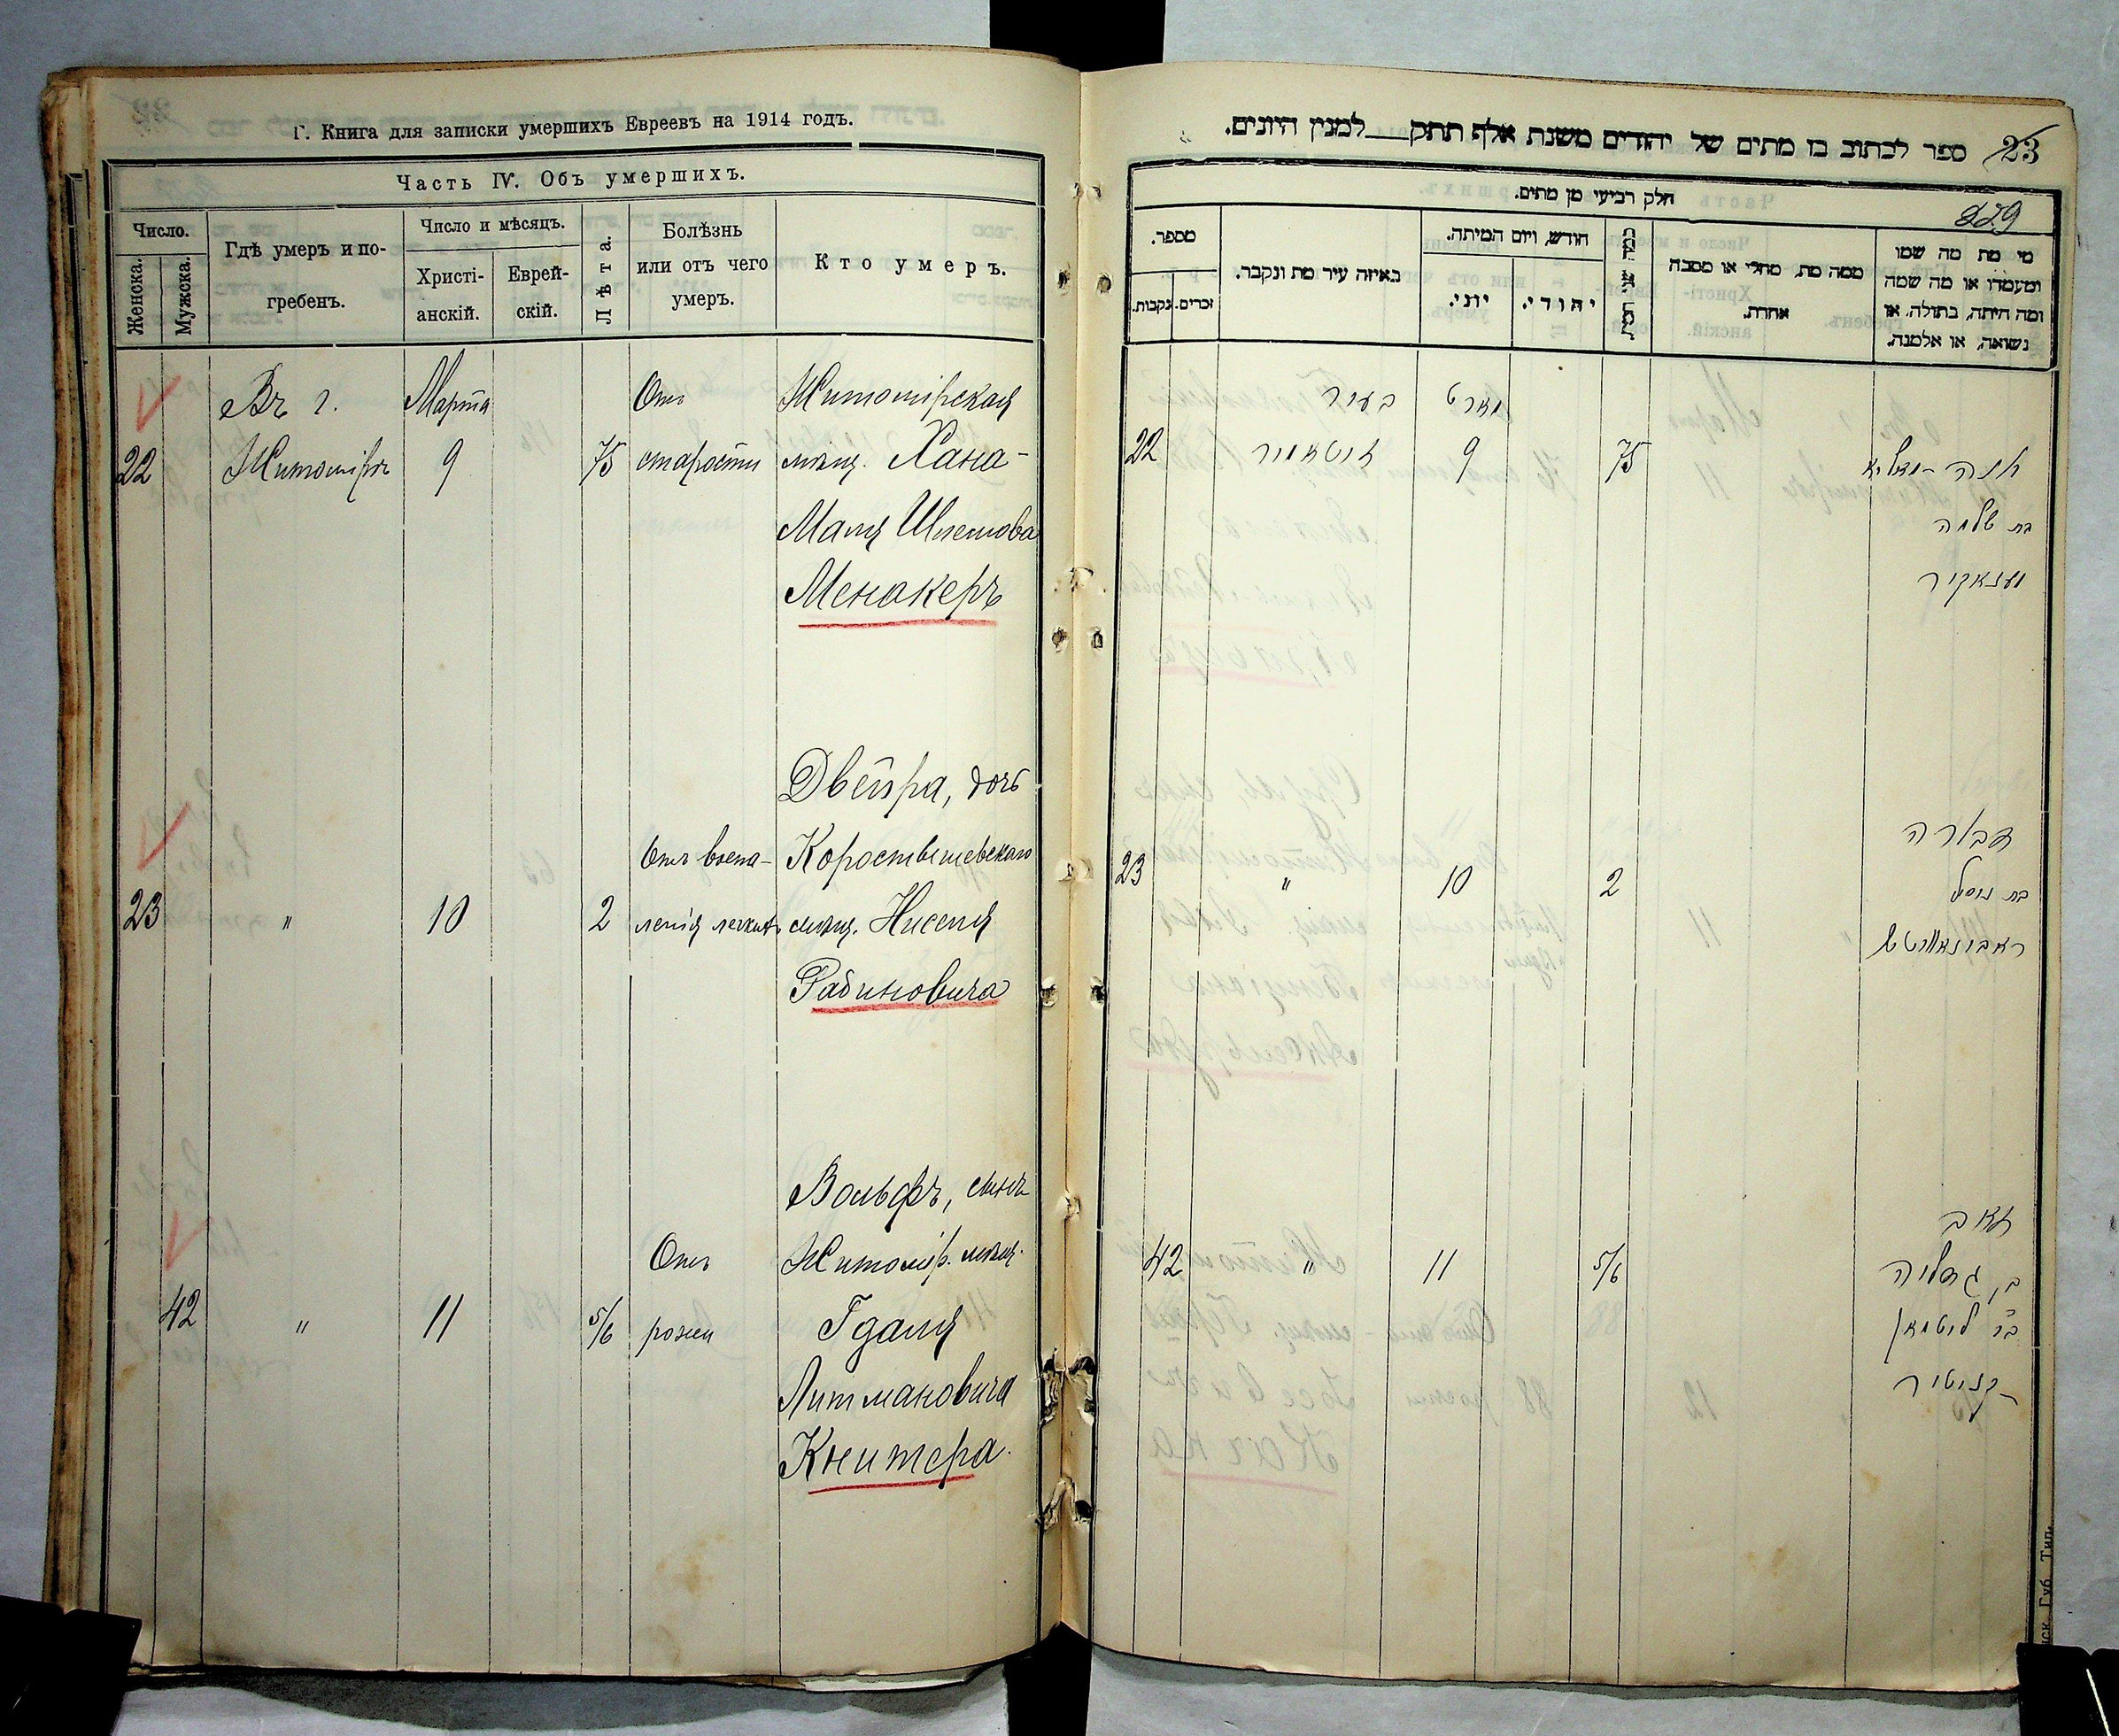 Г. Книга для записки умершихъ Евреевъ на 1914 годъ.
Часть IV. Объ умершихъ.
Число.
Женска.
Мужска.
Гдѣ умеръ и по-
гребенъ.
Число и мѣсяцъ.
Христі-
анскій.
Еврей-
скій.
Лѣта.
Болѣзнь
или отъ чего
умеръ.
Кто умеръ.
Въ г. Марта Отъ Житомірская
22 Житомірѣ 9 75 старости мѣщ. Хана-
Маля Шлемова
Менакеръ
Двейра, дочь
Отъ воспа- Коростышевскаго
23 " 10 2 ленія легкихъ мѣщ. Ниселя
Рабиновича
Вольфъ, сынъ
Отъ Житомір. мѣщ.
42 " 11 5/6 рожи Гдаля
Литмановича
Книтера.
23
ספר לכתוב בו מתים של יהודים משנת אלף תתק למנין היונים.
חלק רביעי מן מתים.
229
מספר.
נקבות.
זכרים.
באיזה עיר מת ונקבר.
חודש, ויום המיתה.
יוני.
יהודי.
ממה מת, מחלי או מסבה
אחרת.
מי מת מה שמו
ומעמדו או מה שמה
ומה היתה, בתולה, או
נשואה, או אלמנה.
בעיר מארט
22 זיטאמיר 9 75 חנה-מאליא
בת שלמה
מענאקיר
דבורה
23 " 10 2 בת ניסל
ראבינאוויטש
זאב
42 " 11 5/6 בן גדליה
ב"ר ליטמאן
קניטיר
Губ. Тип.